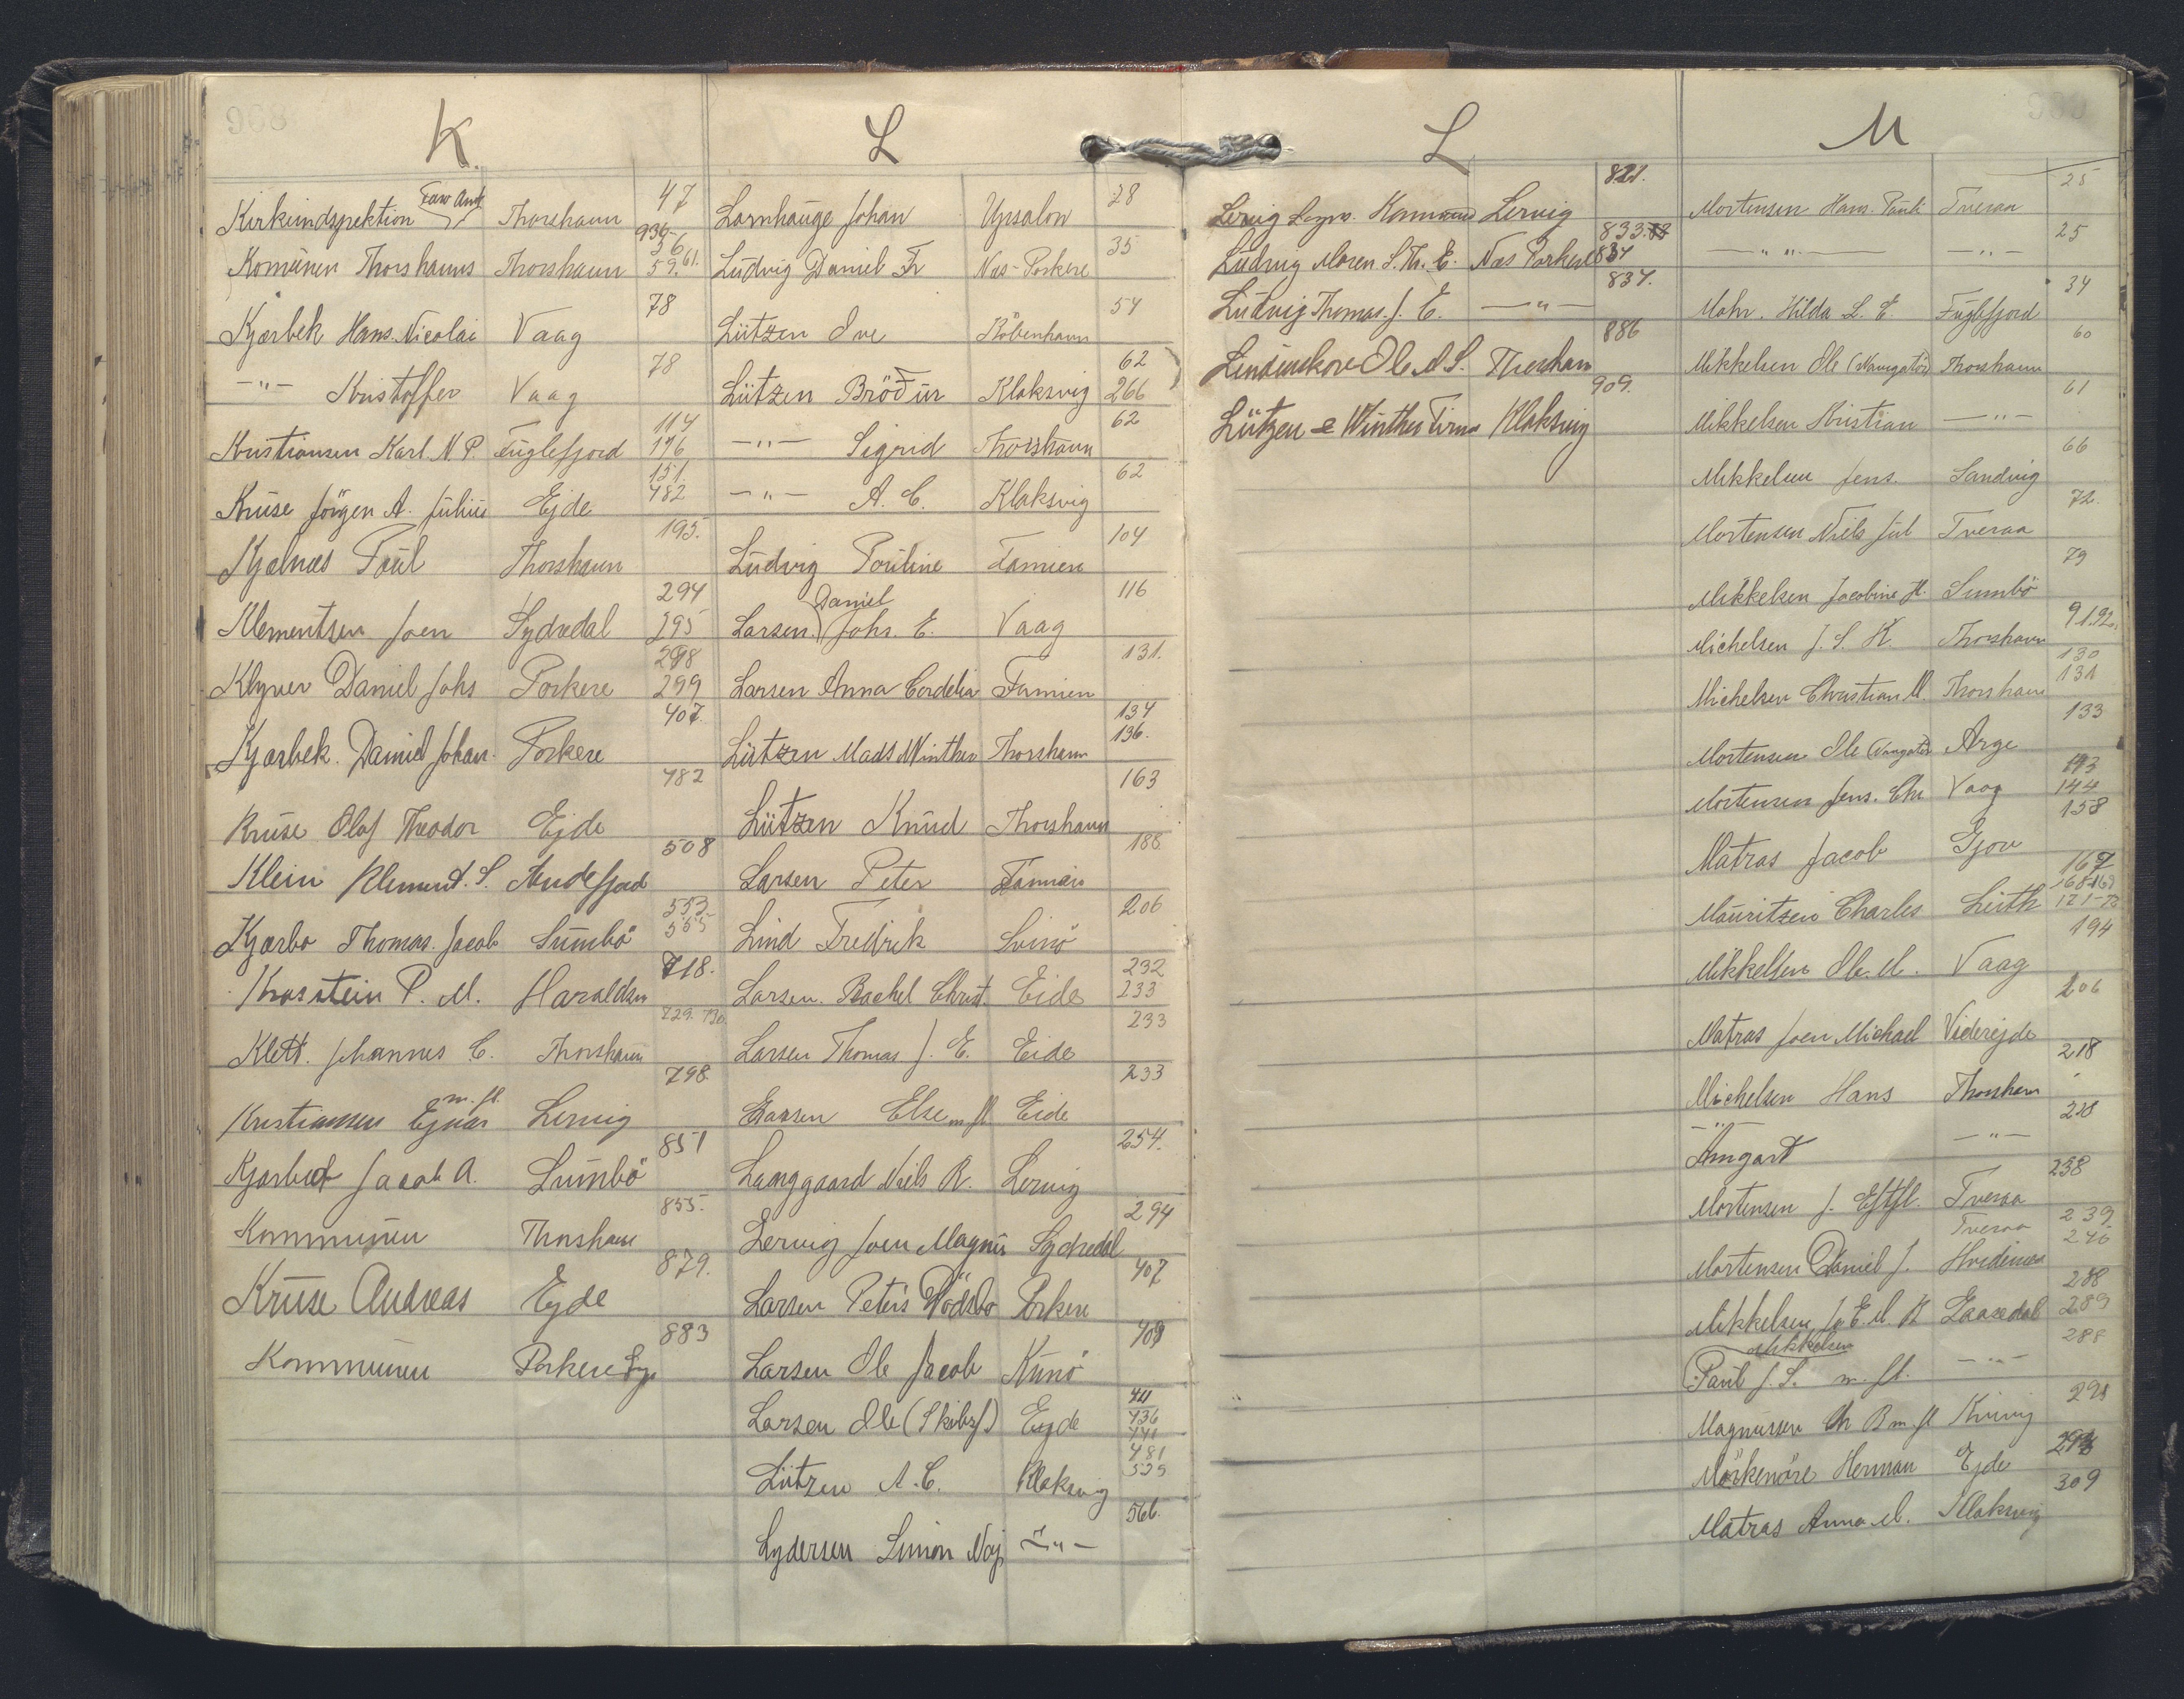 K.
Kirkeindspektion Færø Amt Thorshavn 47 936
Komünen Thorshavns Thorshavn 56 59. 61.
Kjærbek Hans Nicolai Vaag 78
-"- Kristoffer Vaag 78
Kristiansen Karl N. P. Fuglefjord 114 176
Krüse Jörgen A. Julius Ejde 151. 482
Kjølnæs Poül Thorshavn 195.
Klementsen Joen Sydredal 294 295
Klyver Daniel Johs Porkere 298 299
Kjærbek Daniel Johan Porkere 407.
Krüse Olaf Theodor Ejde 482
Klein Klement. S. Andefjord 508
Kjærbo Thomas Jacob Sümbö 553 555
P. M. Haraldsen 718.
Klett. Johannes C. Thorshavn 729. 730.
Kristiansen Ejnar m. fl. Lervig 798
Jacob A. Sümbö 851
Kommunen Thorshavn 855.
Krüse Andreas Ejde 879.
Kommunen Porkere Sg. 883
L
Larnhauge Johan Upsalon 28
Ludvig Daniel Fr Næs-Porkere 35
Lützen Ove Köbenhavn 54
Lützen Bröður Klaksvig 62 266
-"- Sigrid Thorshavn 62
-"- A. C. Klaksvig 62
Ludvig Pouline Famien 104
Larsen Daniel Johs. E. Vaag 116
Larsen Anna Cordelia Famien 131.
Lützen Mads Winther Thorshavn 134 136.
Lützen Knud Thorshavn 163
Larsen Peter Famien 188
Lind Fredrik Svinö 206
Larsen. Rachel Christ. Eide 232 233
Larsen Thomas J. E. Eide 233
Larsen Else m. fl. Eide 233
Langgaard Niels R. Lervig 254.
Lervig Joen Magnus Sydredal 294
Larsen Peter Porkere 407
Larsen Ole Jacob Kunö 409
Larsen Ole (Skibsf) Ejde 411 436 441
Lützen A. C. Klaksvig 481 529
Lydersen Simon -"- 566.
L
Lervig Sogns. Kommune Lervig 821.
Ludvig Maren S. Th. E. Næs Porkere 833. 834
Ludvig Thomas. J. E. -"- 834.
Lindenskov Ole M. S. Thorshavn 886
Lützen & Winther Firma Klaksvig 909.
M
Mortensen Hans Pauli Tveraa 25
-"- -"- 25
Mohr. Hilda L. E. Fuglefjord 34
Mikkelsen Ole (Navigatör) Thorshavn 60
Mikkelsen Kristian -"- 61
Mikkelsen Jens. Sandvig 66
Mortensen Niels Jul Tveraa 72.
Mikkelsen Jacobine H. Sumbö 79
Michelsen J. S. K. Thorshavn 91.92.
Michelsen Christian M. Thorshavn 130 131
Mortensen Ole (Navigatör) Arge 133
Mortensen Jens. Chr. Vaag 143 144
Matras Jacob Gjov 158
Mauritzen Charles Leith 167 168-169
Mikkelsen Ole. M. Vaag 194
Matras Joen Michael Viderejde 206
Michelsen Hans Thorshavn 218
-"- Amgart -"- 218
Mortensen J. Eftfl. Tveraa 238
Mortensen Daniel J. Tveraa Hvidenæs 239 246
Mikkelsen J. E. M. K Gaasedal 288 289
Mikkelsen Paul J. S. m. fl. -"- 288
Magnussen Ch B m. fl Kvivig 291
Mörkenöre Herman Ejde
Matras Anna M. Klaksvig 309